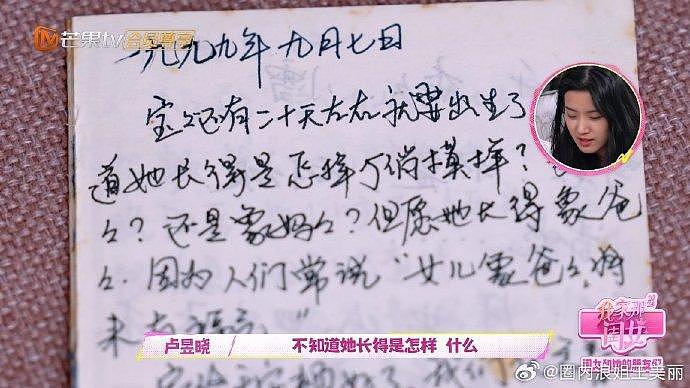 芒果tv 会员尊享
一九九九年九月七日
宝々还有二十天左右就要出生了
道她长得是怎样个俏模样?
々?还是象妈々?但愿她长得象爸
々.因为人们常说“女儿象爸々,将
来有福气”
卢昱晓 不知道她长得是怎样 什么
我家那闺女
闺女和她的朋友们
@圈内浪姐王美丽